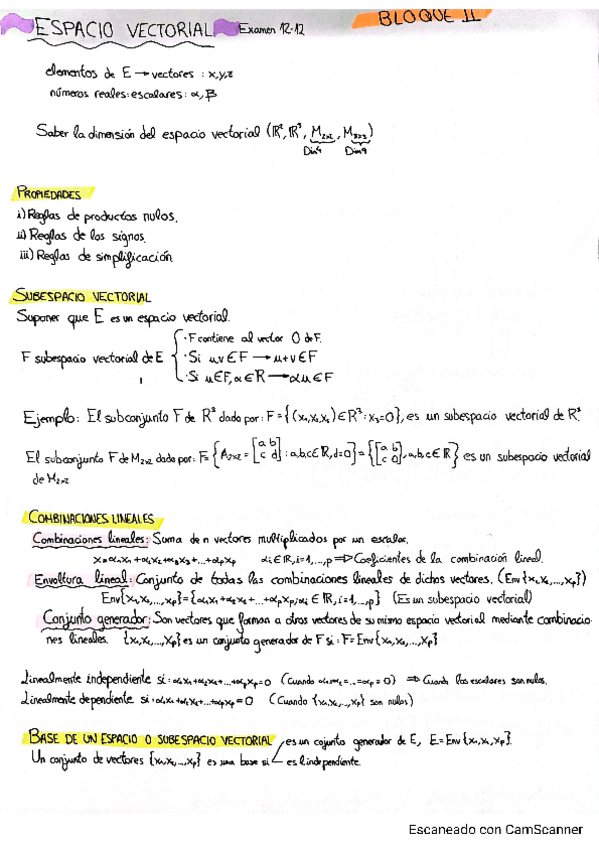 ESPACIO VECTORIAL Examen 12-12 BLOQUE II
elementos de E → vectores : x,y,z
números reales: escalares: α, β
Saber la dimensión del espacio vectorial (ℝ², ℝ³, M₂ₓ₂, M₃ₓ₃)
Dim4 Dim9
PROPIEDADES
i) Reglas de productos nulos.
ii) Reglas de los signos.
iii) Reglas de simplificación
SUBESPACIO VECTORIAL
Suponer que E es un espacio vectorial.
· F contiene al vector 0 de F.
F subespacio vectorial de E { · Si u,v ∈ F → u+v ∈ F
· Si u ∈ F, α ∈ ℝ → αu ∈ F
Ejemplo: El subconjunto F de ℝ³ dado por: F = {(x₁,x₂,x₃) ∈ ℝ³ : x₃=0}, es un subespacio vectorial de ℝ³.
El subconjunto F de M₂ₓ₂ dado por: F = {A₂ₓ₂ = [a b; c d] : a,b,c ∈ ℝ, d=0} = {[a b; c 0], a,b,c ∈ ℝ} es un subespacio vectorial
de M₂ₓ₂
COMBINACIONES LINEALES
Combinaciones lineales: Suma de n vectores multiplicados por un escalar.
x = α₁x₁ + α₂x₂ + α₃x₃ + ... + αₚxₚ αi ∈ ℝ, i=1,...,p ⇒ Coeficientes de la combinación lineal.
Envoltura lineal: Conjunto de todas las combinaciones lineales de dichos vectores. (Env{x₁,x₂,...,xₚ})
Env{x₁,x₂,...,xₚ} = {α₁x₁ + α₂x₂ + ... + αₚxₚ, αi ∈ ℝ, i=1,...,p} (Es un subespacio vectorial)
Conjunto generador: Son vectores que forman a otros vectores de su mismo espacio vectorial mediante combinacio-
nes lineales. {x₁,x₂,...,xₚ} es un conjunto generador de F si: F = Env{x₁,x₂,...,xₚ}
Linealmente independiente si: α₁x₁ + α₂x₂ + ... + αₚxₚ = 0 (Cuando α₁ = α₂ = ... = αₚ = 0) ⇒ Cuando los escalares son nulos.
Linealmente dependiente si: α₁x₁ + α₂x₂ + ... + αₚxₚ = 0 (Cuando {x₁,x₂,...,xₚ} son nulos)
BASE DE UN ESPACIO O SUBESPACIO VECTORIAL es un cojunto generador de E, E = Env{x₁,x₂,xₚ}
Un conjunto de vectores {x₁,x₂,...,xₚ} es una base si es l.independiente.
Escaneado con CamScanner